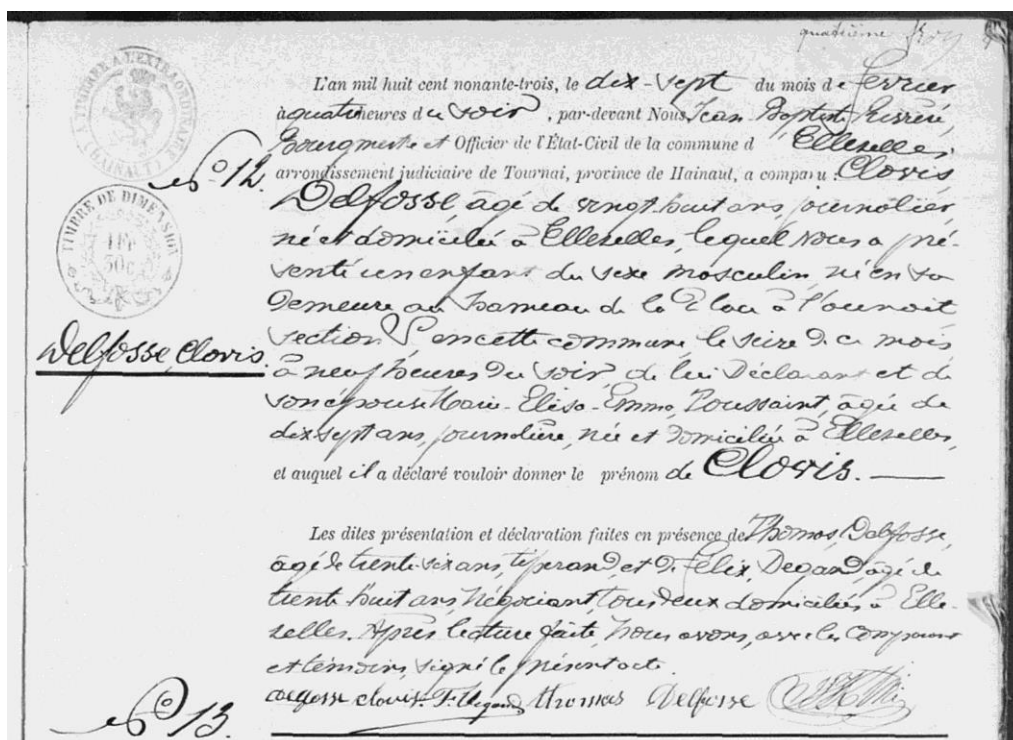 quatrième
A TIMBRE A L'EXTRAORDINAIRE
(HAINAUT)
L'an mil huit cent nonante-trois, le dix-sept du mois de février
à quatre heures du soir, par-devant Nous, Jean Baptiste
Bourgmestre et Officier de l'État-Civil de la commune d'Ellezelles,
N° 12.
arrondissement judiciaire de Tournai, province de Hainaut, a comparu : Clovis
TIMBRE DE DIMENSION
1 FR
50 C
Delfosse, âgé de vingt-huit ans, journalier,
né et domicilié à Ellezelles, lequel nous a pré-
senté un enfant du sexe masculin, né en sa
demeure au hameau de la
section en cette commune, le seize de ce mois
Delfosse, Clovis.
à neuf heures du soir, de lui Déclarant et de
son épouse Marie-Elisa-Emma, Toussaint, âgée de
dix-sept ans, journalière, née et domiciliée à Ellezelles,
et auquel il a déclaré vouloir donner le prénom de Clovis.
Les dites présentation et déclaration faites en présence de Thomas, Delfosse,
âgé de trente-six ans, tisserand, et de Félix, Degand, âgé de
trente-huit ans, négociant, tous deux domiciliés à Elle-
zelles. Après lecture faite, Nous avons, avec les comparant
et témoins, signé le présent acte.
Delfosse Clovis. F. Degand Thomas Delfosse
N° 13.